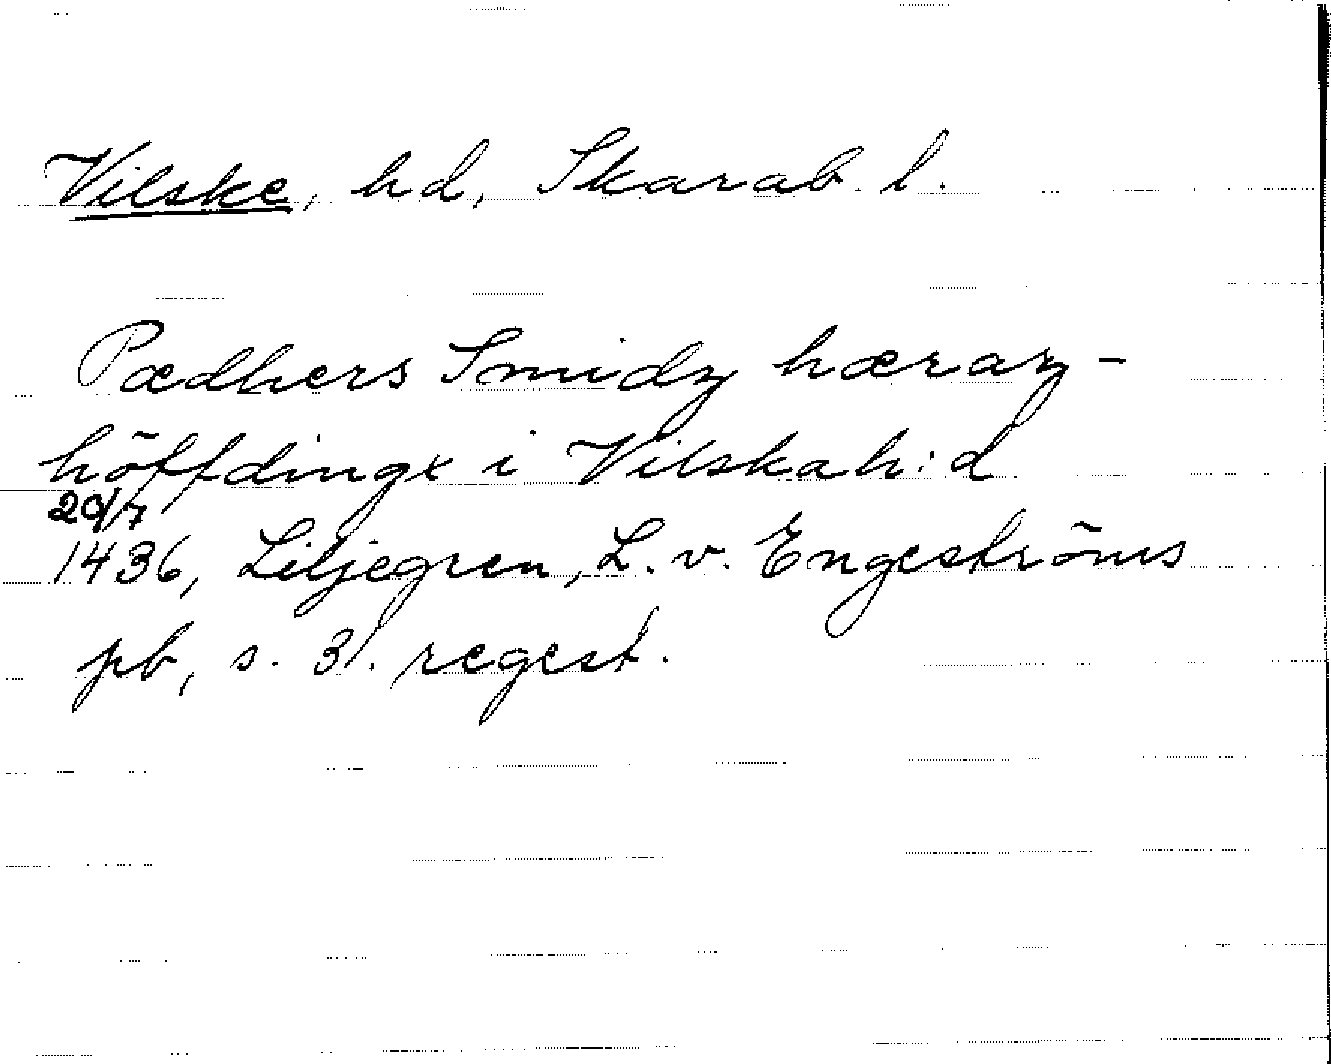 Vilske, hd, Skarab. l.
Pædhers Smidz hæraz-
höffdinge i Vilskah:d
20/7
1436, Liljegren, L. v. Engeströms
pb, s. 31. regest.